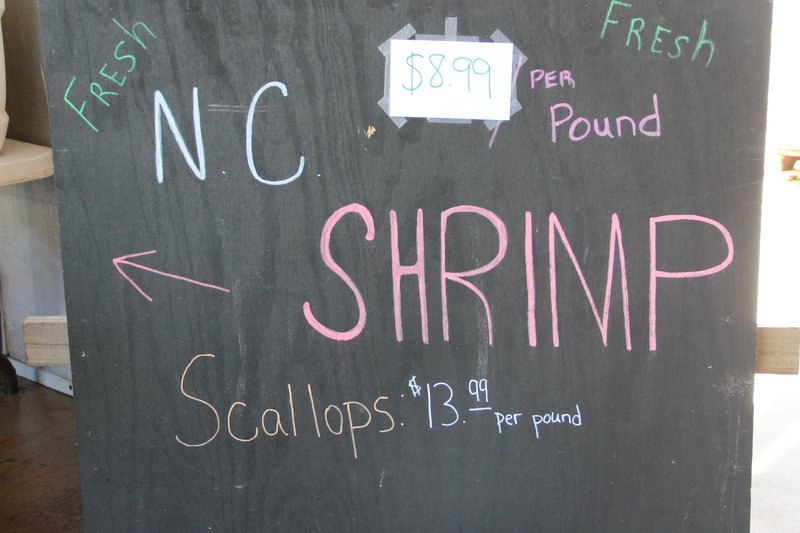 Fresh
Fresh
$8.99 / PER
Pound
N.C.
SHRIMP
Scallops: $13.99 per pound